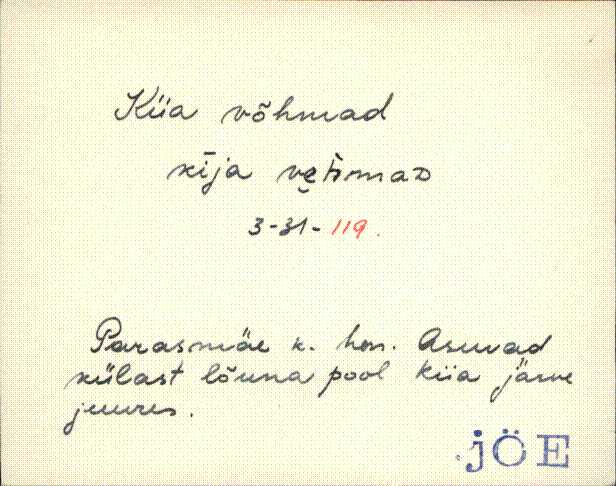 Kiia võhmad
kīja ve̮hmaD
3-31-119.
Parasmäe k. hm. Asuvad
külast lõuna pool Kiia järve
juures.
JÖE